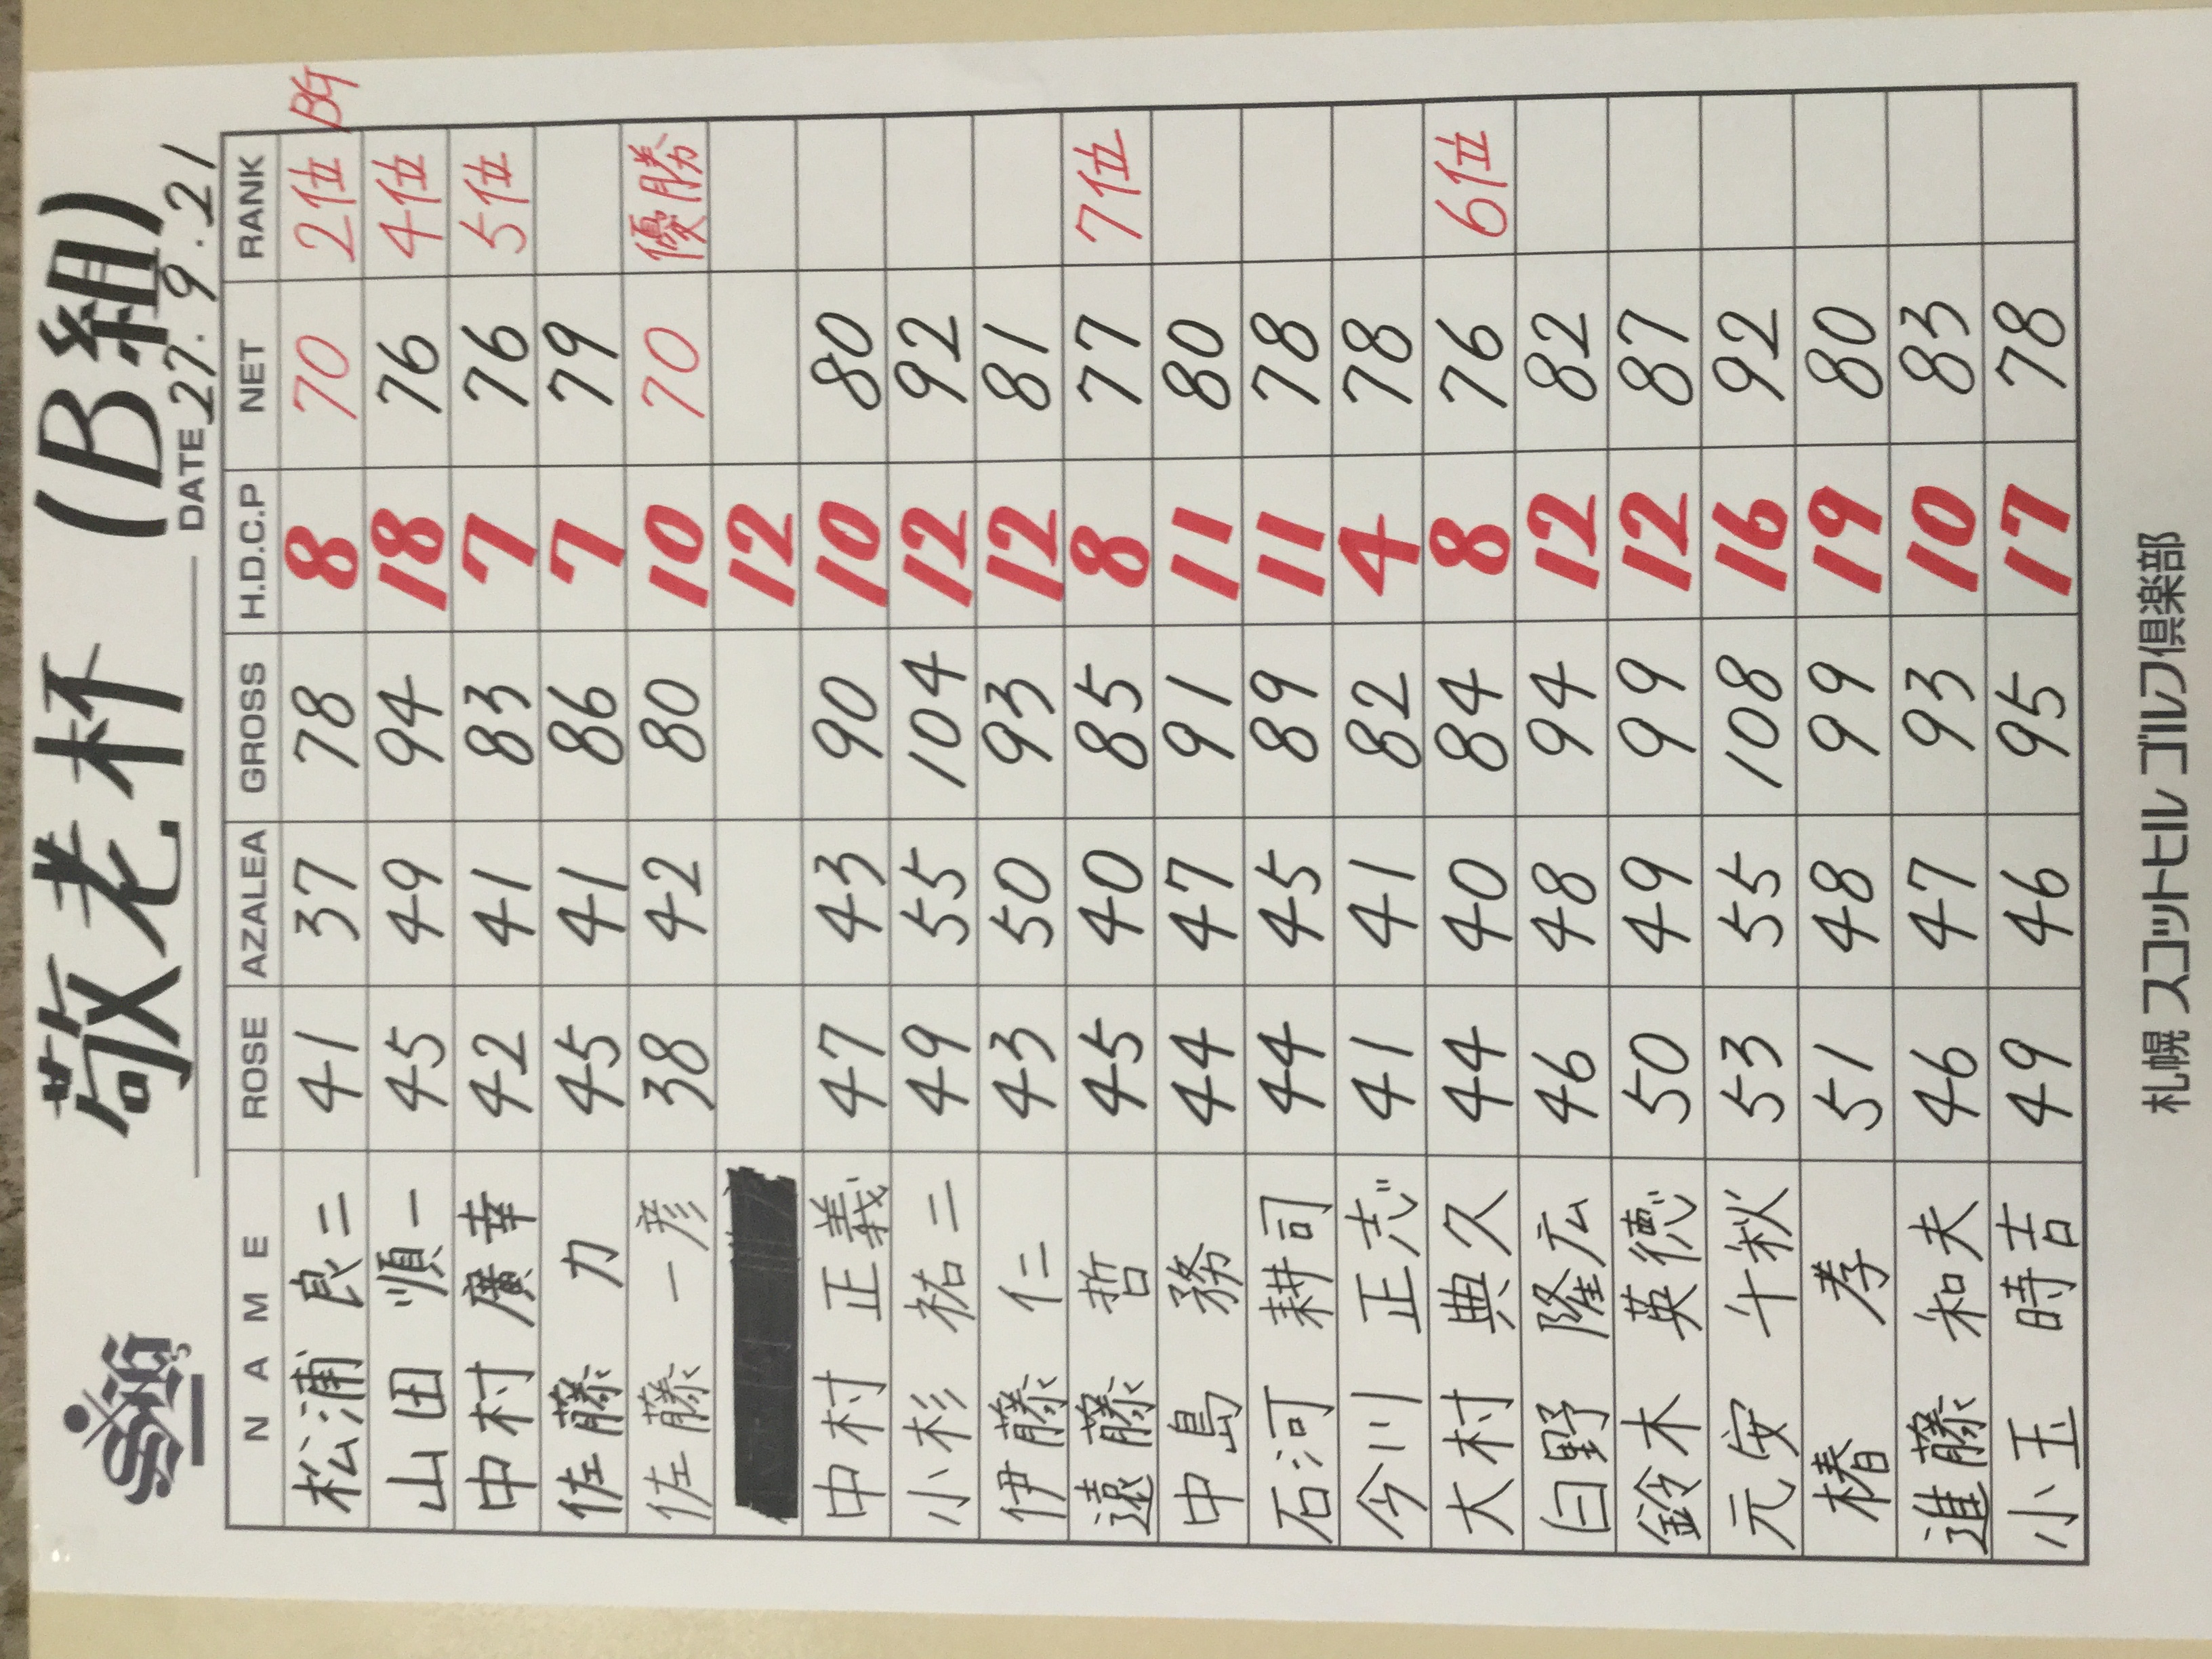 敬老杯 (B組)
DATE 27.9.21
NAME ROSE AZALEA GROSS H.D.C.P NET RANK
松浦 良二 41 37 78 8 70 2位 BG
山田 順一 45 49 94 18 76 4位
中村 廣幸 42 41 83 7 76 5位
佐藤 力 45 41 86 7 79
佐藤 一彦 38 42 80 10 70 優勝
12
中村 正義 47 43 90 10 80
小杉 祐二 49 55 104 12 92
伊藤 仁 43 50 93 12 81
遠藤 哲 45 40 85 8 77 7位
中島 務 44 47 91 11 80
石河 耕司 44 45 89 11 78
今川 正志 41 41 82 4 78
大村 典久 44 40 84 8 76 6位
臼野 隆広 46 48 94 12 82
鈴木 英徳 50 49 99 12 87
元安 千秋 53 55 108 16 92
椿 孝 51 48 99 19 80
進藤 和夫 46 47 93 10 83
小玉 時吉 49 46 95 17 78
札幌 スコットヒル ゴルフ倶楽部